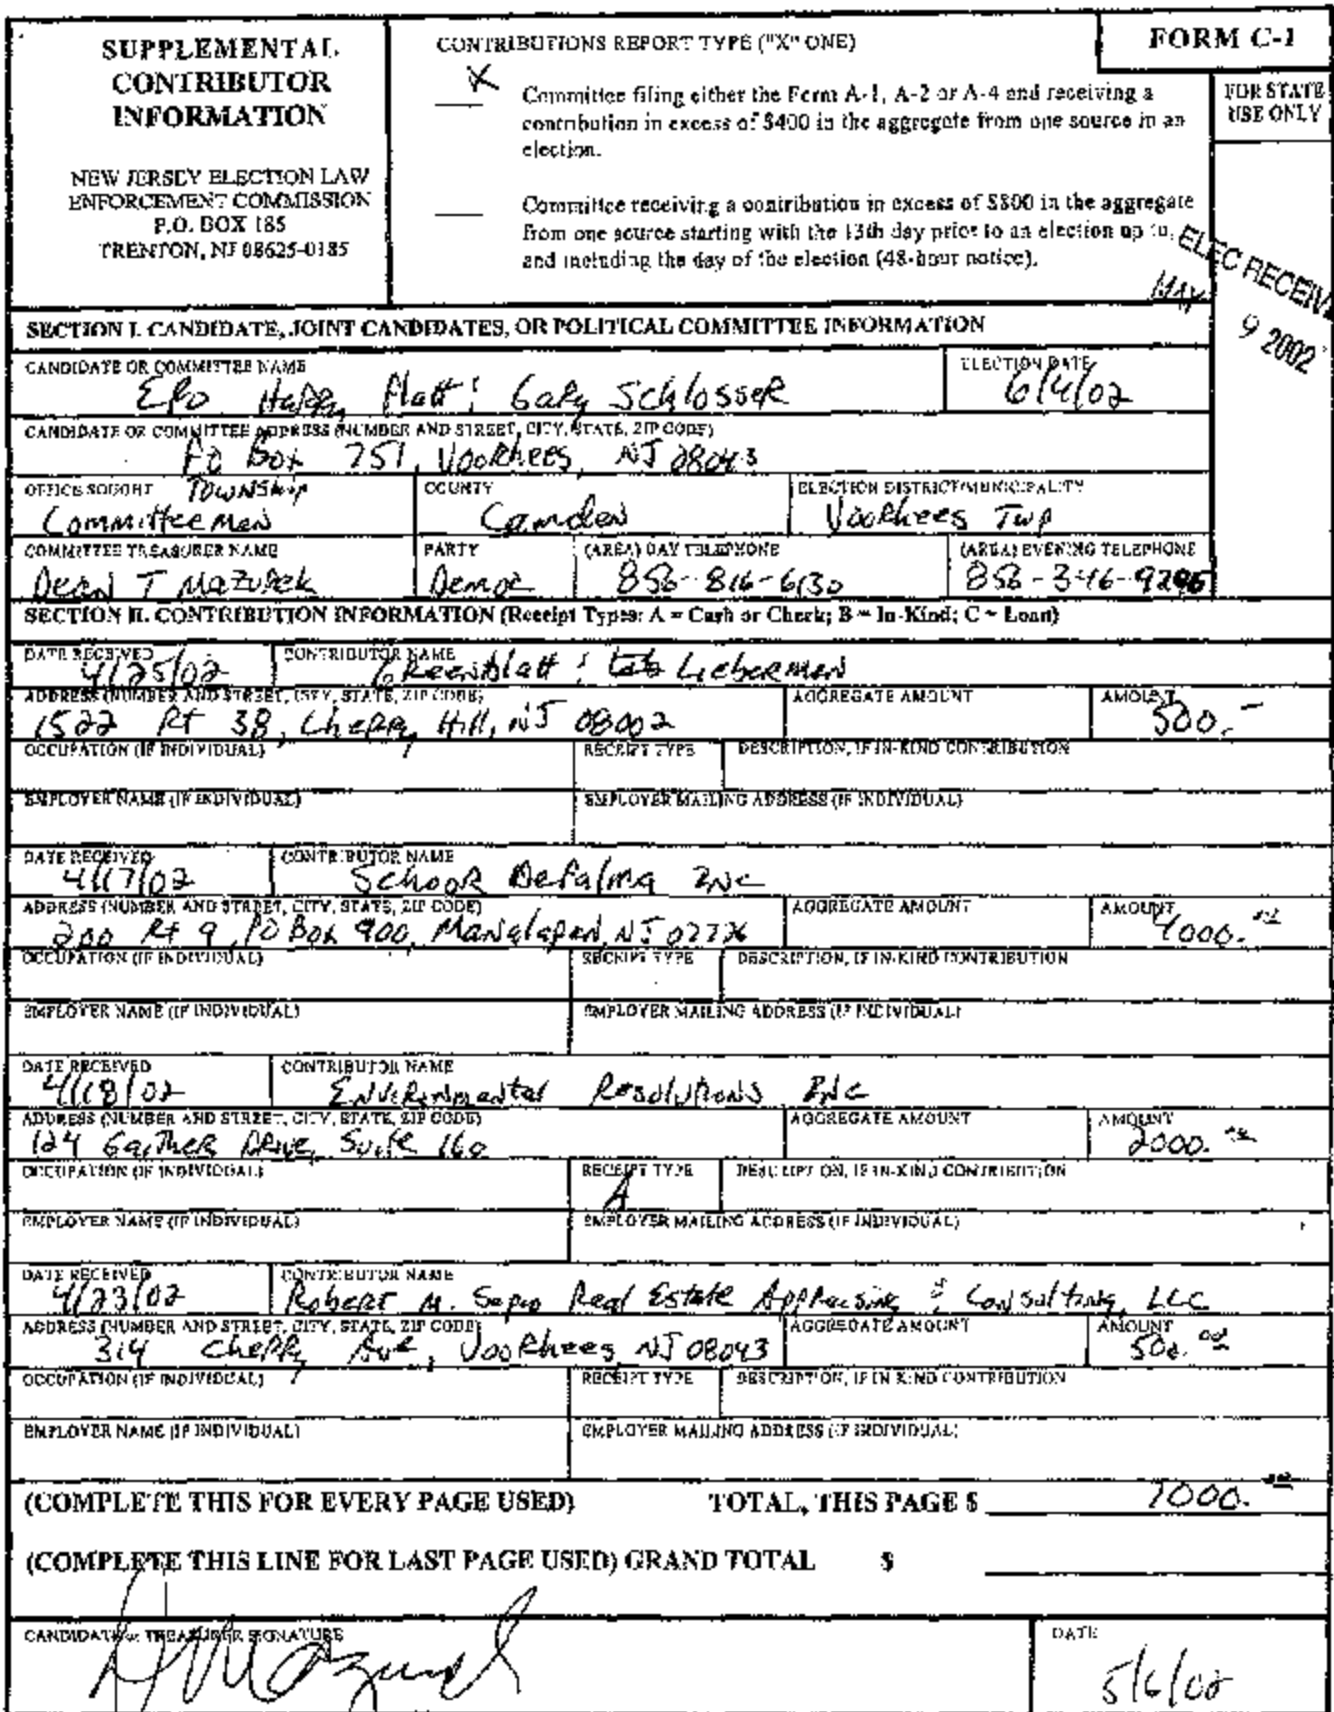 SUPPLEMENTAL CONTRIBUTOR INFORMATION
NEW JERSEY ELECTION LAW
ENFORCEMENT COMMISSION
P.O. BOX 185
TRENTON, NJ 08625-0185
CONTRIBUTIONS REPORT TYPE ("X" ONE)
FORM C-1
X Committee filing either the Form A-1, A-2 or A-4 and receiving a
contribution in excess of $400 in the aggregate from one source in an
election.
Committee receiving a contribution in excess of $800 in the aggregate
from one source starting with the 13th day prior to an election up to,
and including the day of the election (48-hour notice).
FOR STATE
USE ONLY
ELEC RECEIV
MAY 9 2002
SECTION I. CANDIDATE, JOINT CANDIDATES, OR POLITICAL COMMITTEE INFORMATION
CANDIDATE OR COMMITTEE NAME ELECTION DATE
Harry Platt & Gary Schlosser 6/4/02
CANDIDATE OR COMMITTEE ADDRESS (NUMBER AND STREET, CITY, STATE, ZIP CODE)
PO Box 751, Voorhees, NJ 08043
OFFICE SOUGHT COUNTY ELECTION DISTRICT/MUNICIPALITY
Township
Committee Men Camden Voorhees Twp
COMMITTEE TREASURER NAME PARTY (AREA) DAY TELEPHONE (AREA) EVENING TELEPHONE
Dean T Mazurek Democ 856-816-6130 856-346-9295
SECTION II. CONTRIBUTION INFORMATION (Receipt Types: A = Cash or Check; B = In-Kind; C = Loan)
DATE RECEIVED CONTRIBUTOR NAME
4/25/02 Greenblatt & Lieberman
ADDRESS (NUMBER AND STREET, CITY, STATE, ZIP CODE) AGGREGATE AMOUNT AMOUNT
1522 Rt 38, Cherry Hill, NJ 08002 500.-
OCCUPATION (IF INDIVIDUAL) RECEIPT TYPE DESCRIPTION, IF IN-KIND CONTRIBUTION
EMPLOYER NAME (IF INDIVIDUAL) EMPLOYER MAILING ADDRESS (IF INDIVIDUAL)
DATE RECEIVED CONTRIBUTOR NAME
4/17/02 Schoor DePalma Inc
ADDRESS (NUMBER AND STREET, CITY, STATE, ZIP CODE) AGGREGATE AMOUNT AMOUNT
200 Rt 9, PO Box 900, Manalapan, NJ 07726 4000.
OCCUPATION (IF INDIVIDUAL) RECEIPT TYPE DESCRIPTION, IF IN-KIND CONTRIBUTION
EMPLOYER NAME (IF INDIVIDUAL) EMPLOYER MAILING ADDRESS (IF INDIVIDUAL)
DATE RECEIVED CONTRIBUTOR NAME
4/18/02 Environmental Resolutions Inc
ADDRESS (NUMBER AND STREET, CITY, STATE, ZIP CODE) AGGREGATE AMOUNT AMOUNT
124 Gaither Drive, Suite 160 2000.
OCCUPATION (IF INDIVIDUAL) RECEIPT TYPE DESCRIPTION, IF IN-KIND CONTRIBUTION
A
EMPLOYER NAME (IF INDIVIDUAL) EMPLOYER MAILING ADDRESS (IF INDIVIDUAL)
DATE RECEIVED CONTRIBUTOR NAME
4/23/02 Robert M. Sapio Real Estate Appraising & Consulting, LLC
ADDRESS (NUMBER AND STREET, CITY, STATE, ZIP CODE) AGGREGATE AMOUNT AMOUNT
314 Cherry Ave, Voorhees NJ 08043 500.00
OCCUPATION (IF INDIVIDUAL) RECEIPT TYPE DESCRIPTION, IF IN-KIND CONTRIBUTION
EMPLOYER NAME (IF INDIVIDUAL) EMPLOYER MAILING ADDRESS (IF INDIVIDUAL)
(COMPLETE THIS FOR EVERY PAGE USED) TOTAL, THIS PAGE $ 7000.
(COMPLETE THIS LINE FOR LAST PAGE USED) GRAND TOTAL $
CANDIDATE or TREASURER SIGNATURE DATE
5/6/02